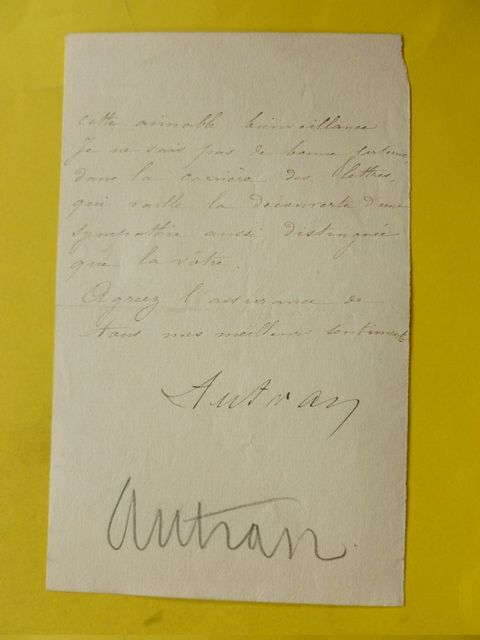 cette aimable bienveillance
Je ne sais pas de bonne fortune,
dans la carrière des lettres,
qui vaille la découverte d'une
sympathie aussi distinguée
que la vôtre.
Agréez l'assurance de
tous mes meilleurs sentiments
Autran
Autran